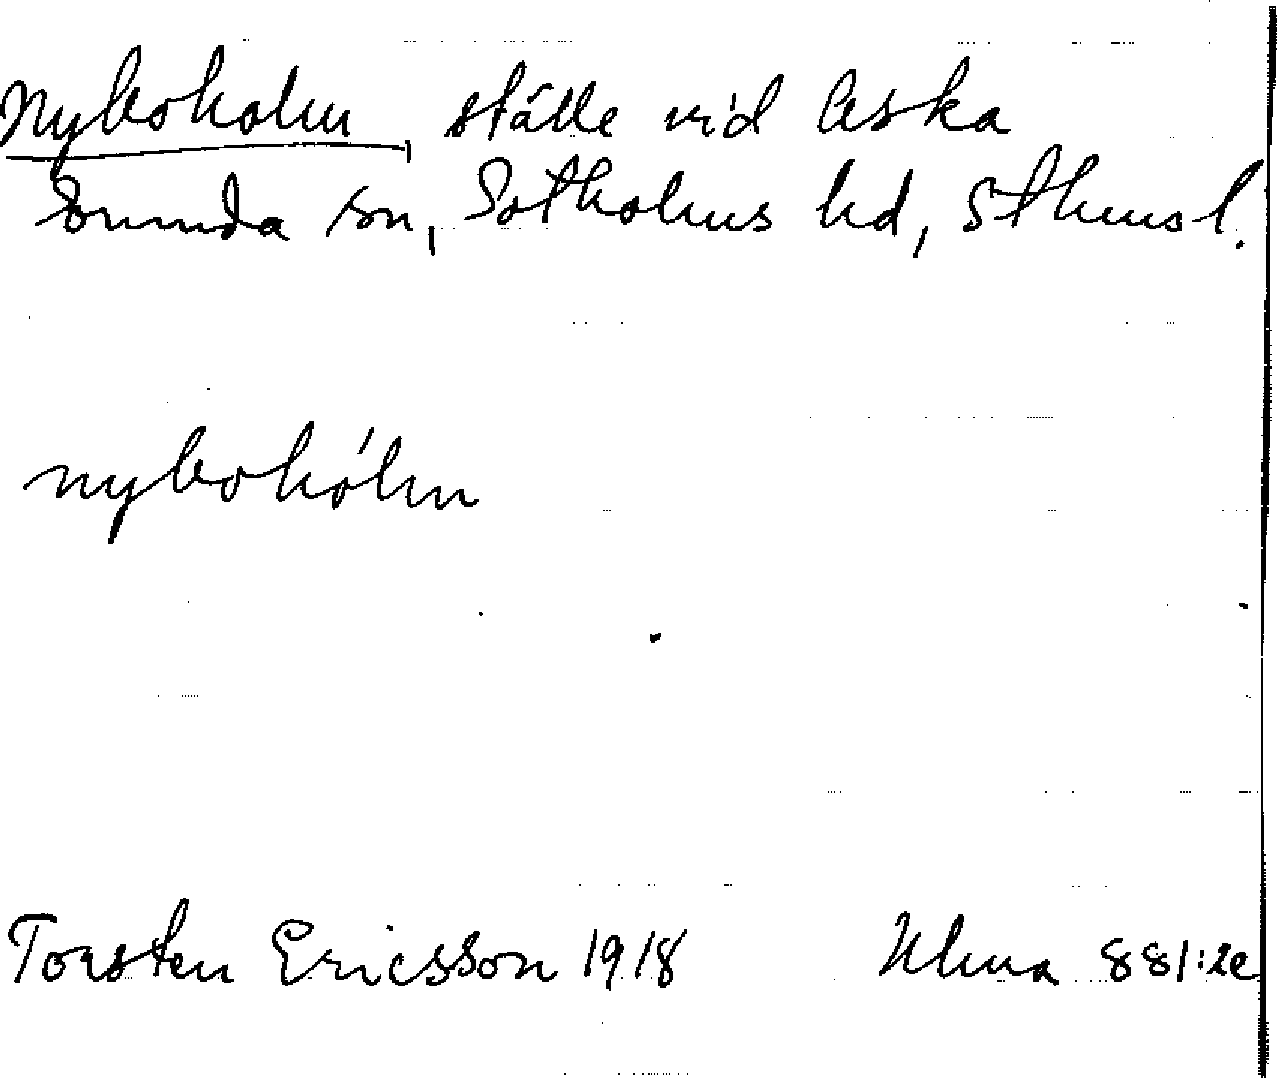 Nyboholm, ställe vid Aska
Sorunda sn, Sotholms hd, Sthms l.
nybohólm
Torsten Ericsson 1918 Ulma 881:2c